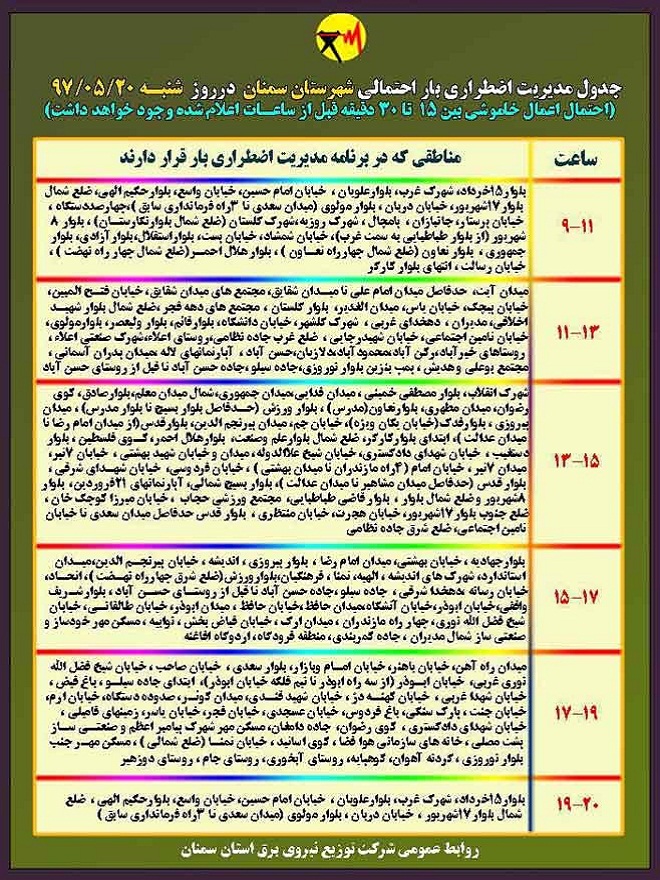 جدول مدیریت اضطراری بار احتمالی شهرستان سمنان درروز شنبه ۹۷/۰۵/۲۰
(احتمال اعمال خاموشی بین ۱۵ تا ۳۰ دقیقه قبل از ساعات اعلام شده وجود خواهد داشت)
ساعت
مناطقی که در برنامه مدیریت اضطراری بار قرار دارند
۹-۱۱
بلوار۱۵خرداد، شهرک غرب، بلوارعلویان ، خیابان امام حسین، خیابان واسع، بلوارحکیم الهی، ضلع شمال
بلوار ۱۷شهریور، خیابان دربان ، بلوار مولوی (میدان سعدی تا ۳راه فرمانداری سابق )،چهارصددستگاه ،
خیابان پرستار، جانبازان ، بامچال ، شهرک روزیه،شهرک گلستان (ضلع شمال بلوارنگارستان) ، بلوار ۸
شهریور (از بلوار طباطبایی به سمت غرب)، خیابان شمشاد، خیابان بست، بلواراستقلال،بلوار آزادی، بلوار
جمهوری ، بلوار تعاون (ضلع شمال چهارراه تعاون ) ، بلوار هلال احمر(ضلع شمال چهار راه نهضت ) ،
خیابان رسالت ، انتهای بلوار کارگر
۱۱-۱۳
میدان آیت، حدفاصل میدان امام علی تا میدان شقایق، مجتمع های میدان شقایق، خیابان فتح المبین،
خیابان پیچک، خیابان یاس، میدان الغدیر، بلوار گلستان ، مجتمع های دهه فجر،ضلع شمال بلوار شهید
اخلاقی، مدیران ، دهخدای غربی ، شهرک گلشهر، خیابان دانشگاه، بلوارقائم، بلوار ولیعصر، بلوارمولوی،
خیابان تامین اجتماعی، خیابان شهیدرجایی ، ضلع غرب جاده نظامی،روستای اعلاء،شهرک صنعتی اعلاء ،
روستاهای خیرآباد، رکن آباد،محمودآباد،دلازیان،حسن آباد ، آپارتمانهای لاله ،میدان پدران آسمانی ،
مجتمع بوعلی وهدیش ، پمپ بنزین بلوار نوروزی، جاده سیلو، جاده حسن آباد تا قبل از روستای حسن آباد
۱۳-۱۵
شهرک انقلاب، بلوار مصطفی خمینی ، میدان فدایی،میدان جمهوری،شمال میدان معلم،بلوارصادق، کوی
رضوان، میدان مطهری، بلوارتعاون(مدرس) ، بلوار ورزش (حدفاصل بلوار بسیج تا بلوار مدرس) ، میدان
پیروزی ، بلوارفدک(خیابان یگان ویژه)، خیابان جم، میدان پیرنجم الدین، بلوارقدس(از میدان امام رضا تا
میدان عدالت )، ابتدای بلوارکارگر، ضلع شمال بلوارعلم وصنعت، بلوارهلال احمر، کوی فلسطین ، بلوار
دستغیب ، خیابان شهدای دادگستری، خیابان شیخ علاالدوله، میدان و خیابان شهید بهشتی ، خیابان ۷تیر،
میدان ۷تیر، خیابان امام (۴راه مازندران تا میدان بهشتی ) ، خیابان فردوسی، خیابان شهدای شرقی ،
بلوار قدس (حدفاصل میدان مشاهیر تا میدان عدالت )، بلوار بسیج شمالی، آپارتمانهای ۲۱فروردین، بلوار
۸شهریور و ضلع شمال بلوار ، بلوار قاضی طباطبایی، مجتمع ورزشی حجاب ، خیابان میرزا کوچک خان ،
ضلع جنوب بلوار ۱۷شهریور، خیابان هجرت، خیابان منتظری ، بلوار قدس حدفاصل میدان سعدی تا خیابان
تامین اجتماعی، ضلع شرق جاده نظامی
۱۵-۱۷
بلوار جهادیه ، خیابان بهشتی، میدان امام رضا ، بلوار پیروزی ، اندیشه ، خیابان پیرنجم الدین،میدان
استاندارد، شهرک های اندیشه ، الهیه، نمتا ، فرهنگیان،بلوارورزش(ضلع شرق چهارراه نهضت )، اتحاد،
خیابان رسانه ،دهخدا شرقی ، جاده سیلو، جاده حسن آباد تا قبل از روستای حسن آباد ، بلوار شریف
واقفی، خیابان ابوذر، خیابان آتشگاه، میدان حافظ، خیابان حافظ ، میدان ابوذر، خیابان طالقانی، خیابان
شیخ فضل الله نوری، چهار راه مازندران ، میدان ارک ، خیابان فیاض بخش ، توابیه ، مسکن مهر خودساز و
صنعتی ساز شمال مدیران ، جاده کمربندی، منطقه فرودگاه، اردوگاه افاغنه
۱۷-۱۹
میدان راه آهن، خیابان باهنر، خیابان امام وبازار، بلوار سعدی ، خیابان صاحب ، خیابان شیخ فضل الله
نوری غربی، خیابان ابوذر (از سه راه ابوذر تا نیم فلکه خیابان ابوذر)، ابتدای جاده سیلو ، باغ فیض ،
خیابان شهدا غربی ، خیابان کهنه دژ ، خیابان شهید قندی، میدان کوثر، صدوده دستگاه، خیابان ارم،
خیابان جنت ، پارک سنگی، باغ فردوس، خیابان عسجدی، خیابان فجر، خیابان یاسر، زمینهای فامیلی ،
خیابان شهدای دادگستری ، کوی رضوان، جاده دامغان، مسکن مهر شهرک پیامبر اعظم و صنعتی ساز
پشت مصلی ، خانه های سازمانی هوا فضا ، کوی اساتید ، خیابان نمتا (ضلع شمالی ) ، مسکن مهر جنب
بلوار نوروزی ، گردنه آهوان، کوهپایه، روستای آبخوری، روستای جام ، روستای دوزهیر
۱۹-۲۰
بلوار۱۵خرداد، شهرک غرب، بلوارعلویان ، خیابان امام حسین، خیابان واسع، بلوارحکیم الهی ، ضلع
شمال بلوار ۱۷شهریور ، خیابان دربان ، بلوار مولوی (میدان سعدی تا ۳راه فرمانداری سابق )
روابط عمومی شرکت توزیع نیروی برق استان سمنان